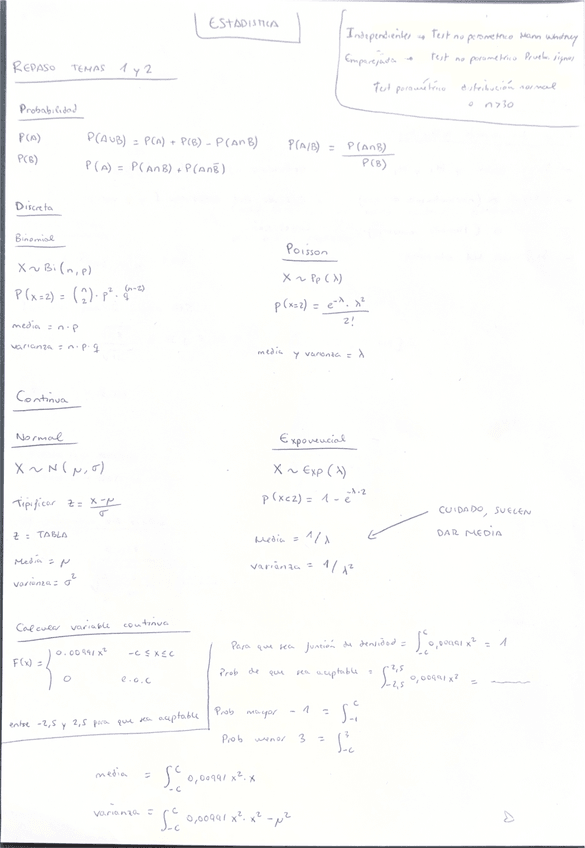 ESTADISTICA
Independientes → Test no parametrico Mann Whitney
Emparejada → Test no parametrico Prueba signos
Test paramétrico distribución normal
o n>30
REPASO TEMAS 1 y 2
Probabilidad
P(A) P(A∪B) = P(A) + P(B) - P(A∩B) P(A/B) = P(A∩B) / P(B)
P(B) P(A) = P(A∩B) + P(A∩B̄)
Discreta
Binomial
X ~ Bi(n,p)
P(x=2) = (n 2) · p² · q^(n-2)
media = n·p
varianza = n·p·q
Poisson
X ~ Pp(λ)
P(x=2) = e^-λ · λ² / 2!
media y varianza = λ
Continua
Normal
X ~ N(μ,σ)
Tipificar z = x-μ / σ
z = TABLA
Media = μ
varianza = σ²
Exponencial
X ~ Exp(λ)
P(x<2) = 1 - e^-λ·2
Media = 1/λ
varianza = 1/λ²
CUIDADO, SUELEN
DAR MEDIA
Calcular variable continua
F(x) = { 0.00991x² -c ≤ x ≤ c
0 e.o.c
entre -2,5 y 2,5 para que sea aceptable
Para que sea función de densidad = ∫_-c^c 0,00991x² = 1
Prob de que sea aceptable = ∫_-2,5^2,5 0,00991x² =
Prob mayor -1 = ∫_-1^c
Prob menor 3 = ∫_-c^3
media = ∫_-c^c 0,00991x²·x
varianza = ∫_-c^c 0,00991x²·x² - μ²